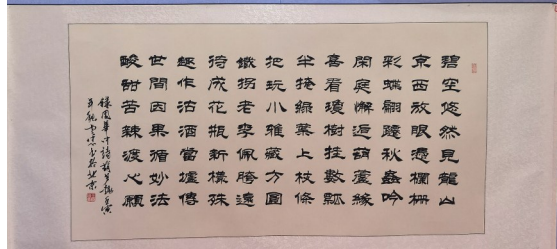 碧空悠然見龍山
京西放眼憑欄柵
彩蝶翩躚秋蟲吟
閑庭懈逅葫蘆緣
喜看瓊樹挂數瓢
半掩綠葉上枝條
把玩小雅藏方圓
鐵拐老李佩
待成花瓶新樣殊
趣作沽酒當壚傳
世間因果循妙法
酸甜苦辣渡心願